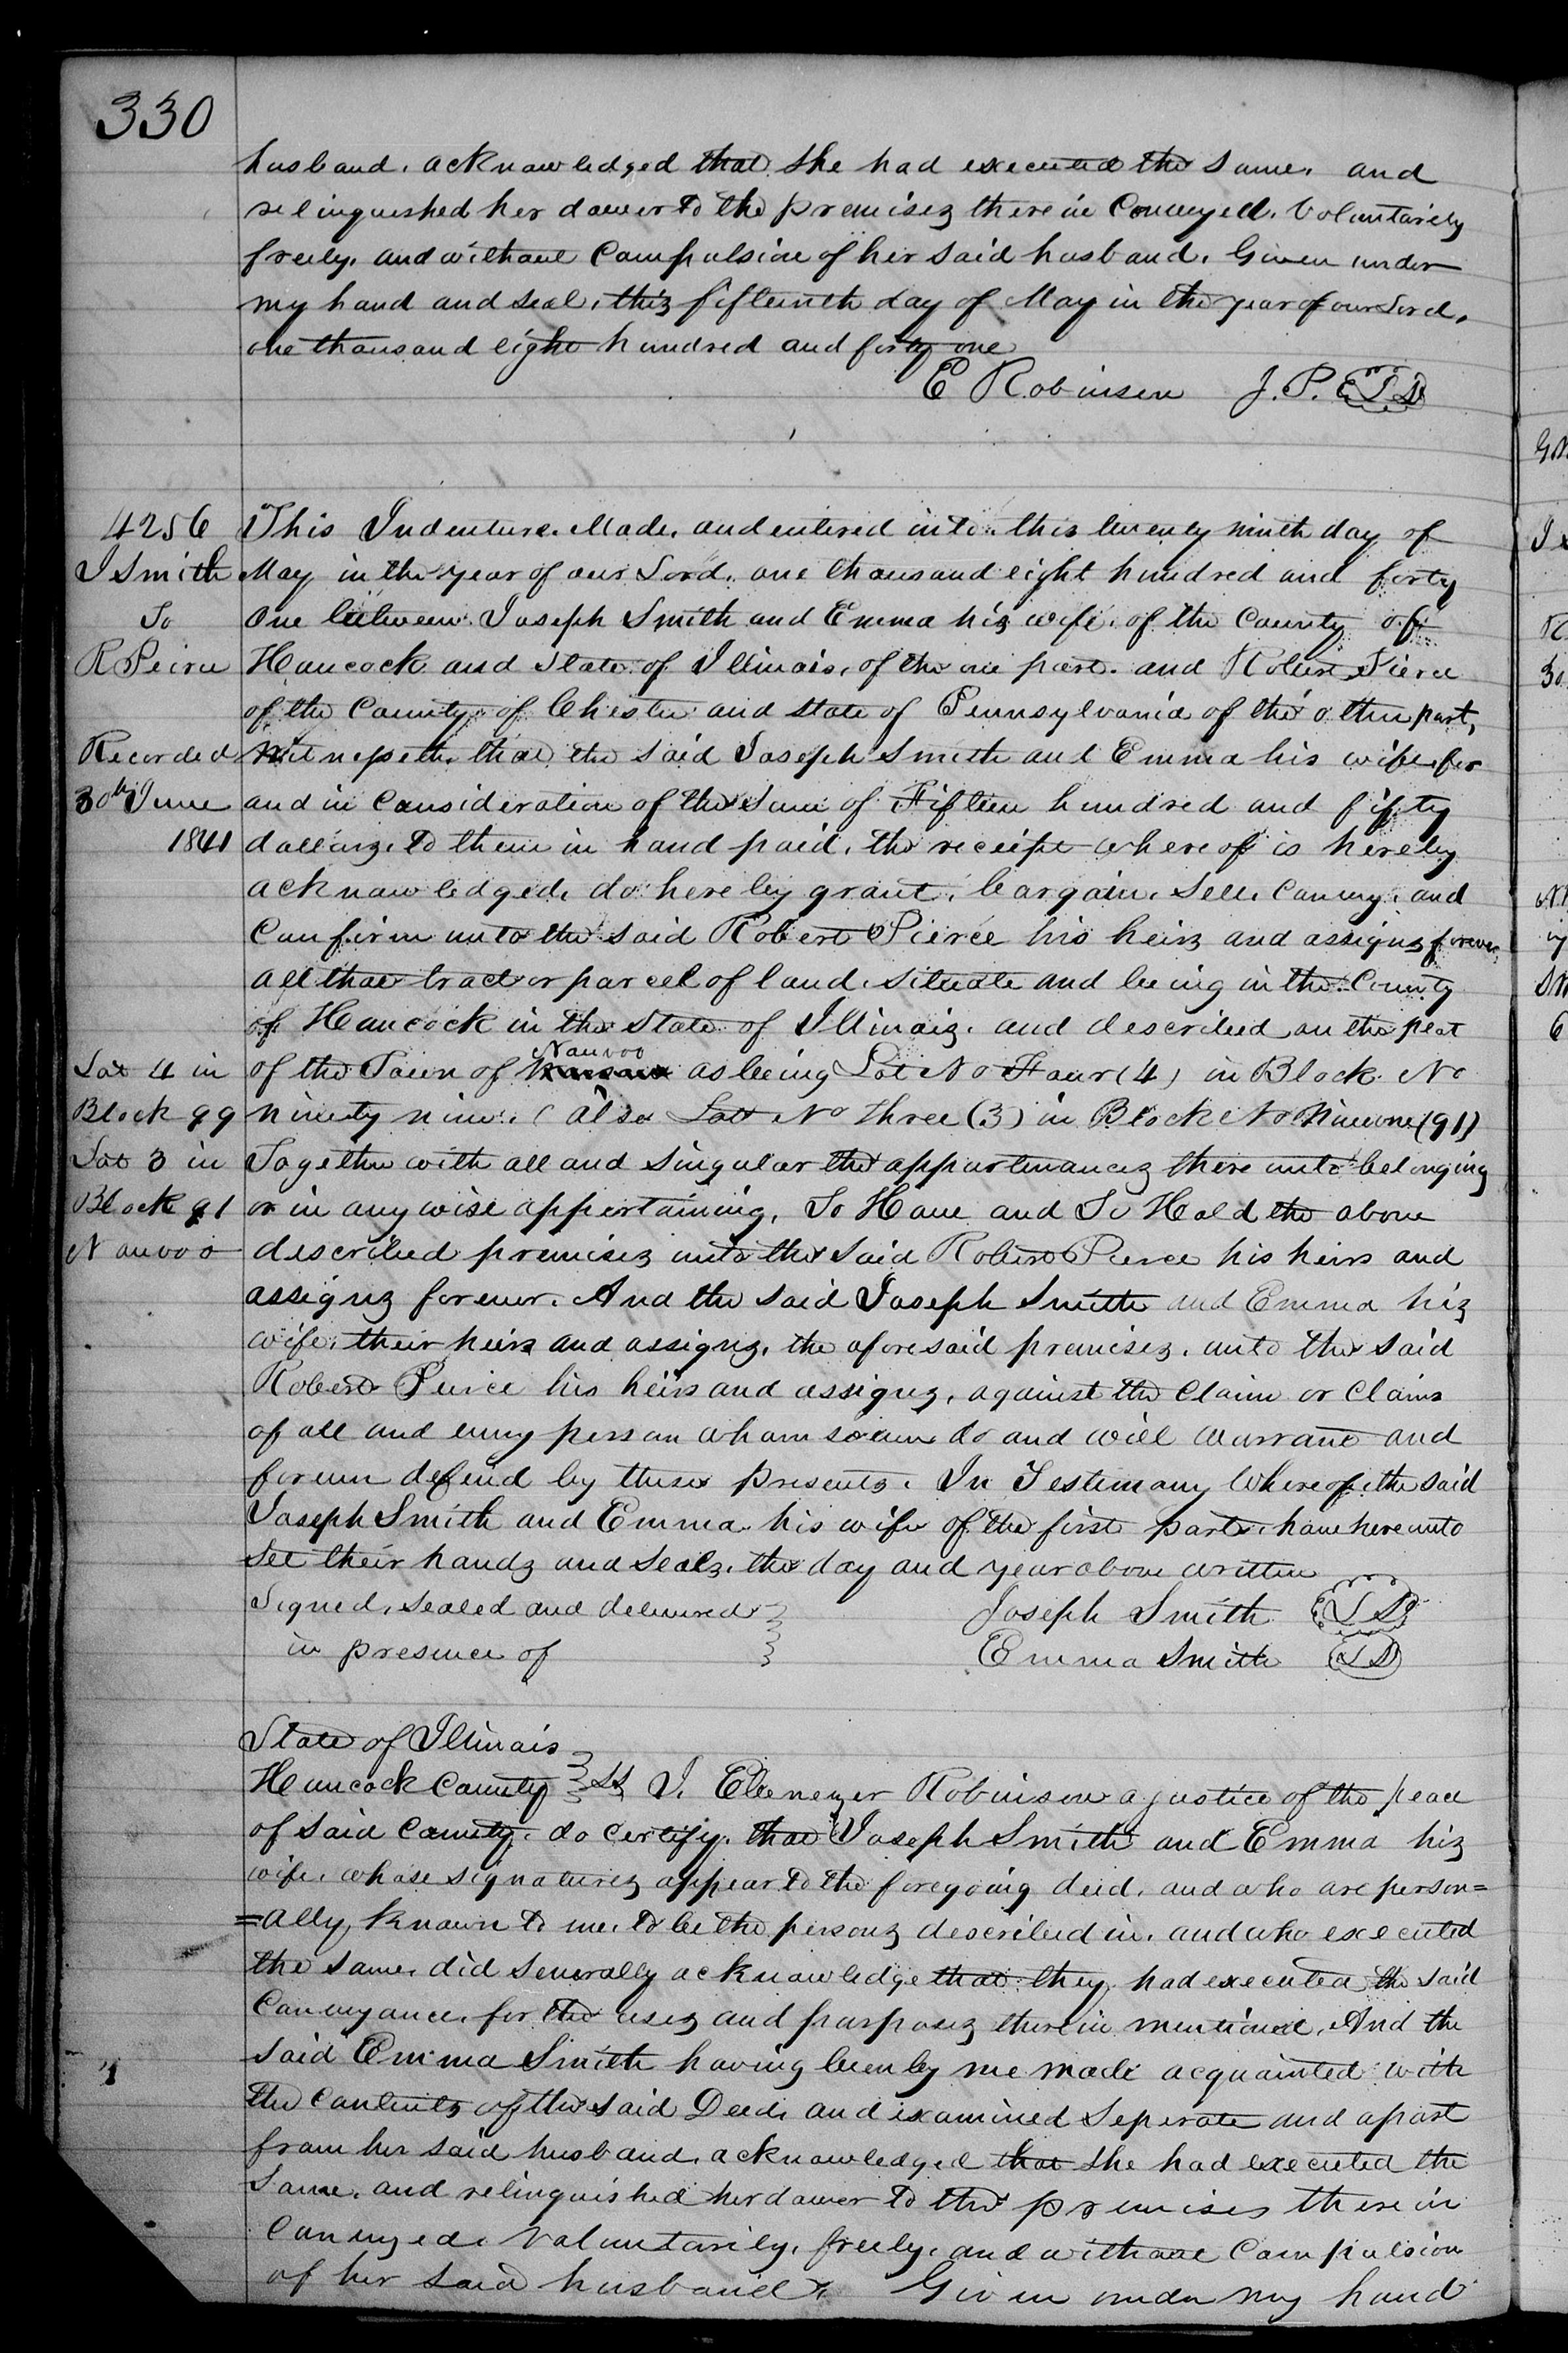 330
husband, acknowledged that she had executed the same, and
relinquished her dower to the premises therein Conveyed, Voluntarily
freely, and without Compulsion of her said husband. Given under
my hand and seal, this fifteenth day of May in the year of our Lord,
one thousand eight hundred and forty one
E Robinson J. P. LS
4256
J Smith
To
R Peirce
Recorded
30th June
1841
This Indenture. Made, and entered into this twenty ninth day of
May in the year of our Lord, one thousand eight hundred and forty
one between Joseph Smith and Emma his wife, of the County of
Hancock and State of Illinois, of the one part. and Robert Pierce
of the County of Chester and state of Pennsylvania of the other part,
Witnesseth, that the said Joseph Smith and Emma his wife for
and in Consideration of the Sum of Fifteen hundred and fifty
dollars, to them in hand paid, the receipt whereof is hereby
acknowledged, do hereby grant, bargain, Sell, Convey, and
Confirm unto the said Robert Pierce his heirs and assigns forever,
all that tract or parcel of land, situate and being in the County
of Hancock in the State of Illinois, and described on the plat
of the Town of Nauvoo as being Lot No Four (4) in Block No
ninety nine. (also Lot No three (3) in Block No Nineone (91)
Lot 4 in
Block 99
Lot 3 in
Block 91
Nauvoo
Together with all and singular the appurtenances there unto belonging
or in any wise appertaining, To Have and To Hold the above
described premises unto the said Robert Pierce his heirs and
assigns forever. And the said Joseph Smith and Emma his
wife, their heirs and assigns, the aforesaid premises, unto the said
Robert Peirce his heirs and assigns, against the Claim or Claims
of all and every person whom soever do and will warrant and
forever defend by these presents. In Testimony Whereof, the said
Joseph Smith and Emma his wife of the first part, have hereunto
set their hands and seals, the day and year above written
Signed, sealed and delivered
in presence of
Joseph Smith LS
Emma Smith LS
State of Illinois
Hancock County SS I. Ebenezer Robinson a justice of the peace
of said County, do certify, that Joseph Smith and Emma his
wife, whose signatures appear to the foregoing deed, and who are person=
=ally, known to me, to be the persons described in, and who executed
the same, did severally acknowledge that they had executed the said
Conveyance, for the uses and purposes therein mentioned, And the
said Emma Smith having been by me made acquainted with
the Contents of the said Deed, and examined Seperate and apart
from her said husband, acknowledged that she had executed the
Same, and relinquished her dower to the premises there in
Conveyed, Voluntarily, freely, and without Compulsion
of her said husband. Given under my hand